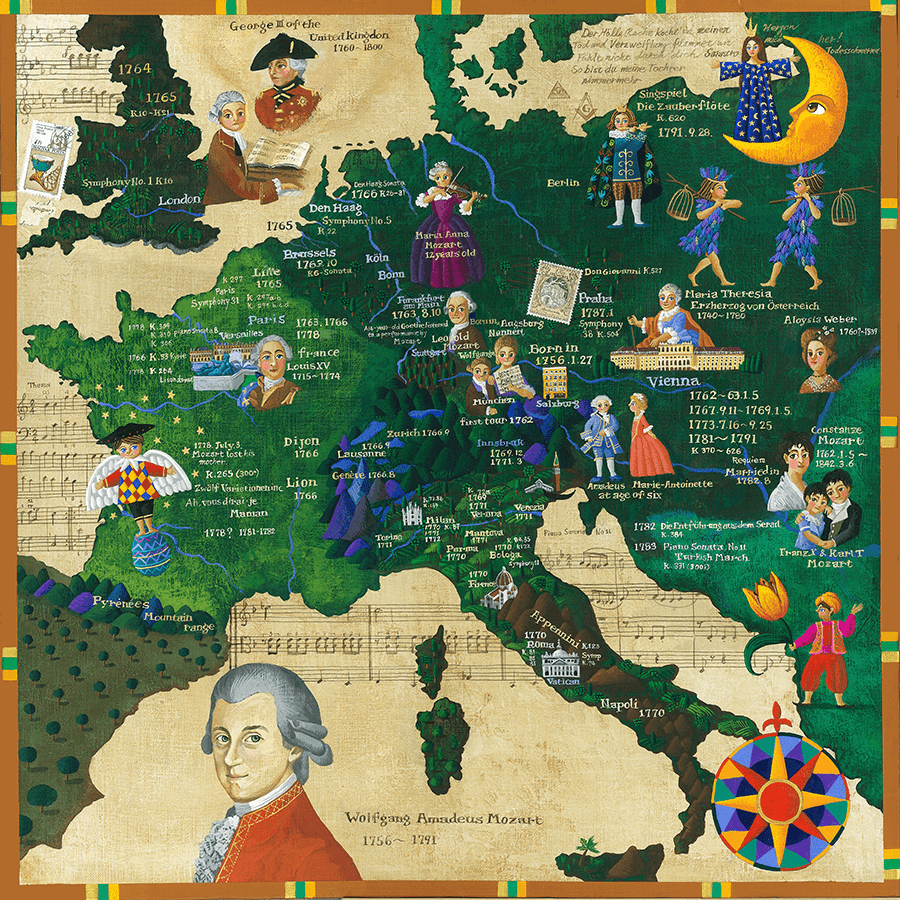 George III of the
United kingdom
1760~1800
Der Hölle Rache kocht in meinem
Herzen
Tod und Verzweiflung flammet um
mich
her!
Fühlt nicht durch dich Sarastro
Todesschmerzen
So bist du meine Tochter
nimmermehr
1764
1765
K16~K21
Symphony No. 1 K16
London
Singspiel
Die Zauberflöte
K. 620
1791.9.28.
Berlin
Den Haag Sonata
1766 K26~31
Den Haag
Symphony No.5
K.22
1765
Maria Anna
Mozart
12 years old
Brussels
1763.10
K6-Sonata
köln
Bonn
Lille
1765
K 297
Paris
Symphony 31
Don Giovanni K.527
Praha
1787.1
Symphony
38 K 504
Maria Theresia
Erzherzog von Österreich
1740~1780
Furankfurt
am Main
1763, 8.10
Mozart
Stuttgart
Leopold
Mozart
Born in Augsburg
Nannerl
Wolfgang
Paris
1763, 1766
1778
Versailles
france
Louis XV
1715~1774
1778 K.
1766 K.33 Kyrie
1778 K 264
Lisondormait
Born in
1756.1.27
München
Salzburg
first tour 1762
Vienna
1762~63.1.5
1767.9.11~1769.1.5
1773.7.16~9.25
1781~1791
K 370~626
Aloysia Weber
Requiem
Married in
1782.8
Constanze
Mozart
1762.1.5~
1842.3.6
Amadeus
at age of six
Marie-Antoinette
Thema
1778. July.3,
Mozart lost his
mother
K.265 (300e)
Zwölf Variationen in
Ah, vous dirai-je
Maman
1778? 1781~1782
Dijon
1766
Lion
1766
Zurich 1766.9
1766.9
Lausanne
Genève 1766.8
Innsbruk
1769.12
1771.3
Torino
1771
Milan
1770
1771
1772
1769
1771
Verona
Venezia
1771
Mantova
1771
Parma
1770
Bologa
1770
1770
Firenze
Piano Sonata No.11
1782 Die Entführung aus dem Serail
K.384
1783 Piano Sonata No.11
Turkish March
K.331 (300i)
Franz.X & Karl T
Mozart
Pyrenees
Mountain
range
Appennini
1770
Roma
K.123
Symp
K.74
Vatican
Napoli 1770
Wolfgang Amadeus Mozart
1756~ 1791